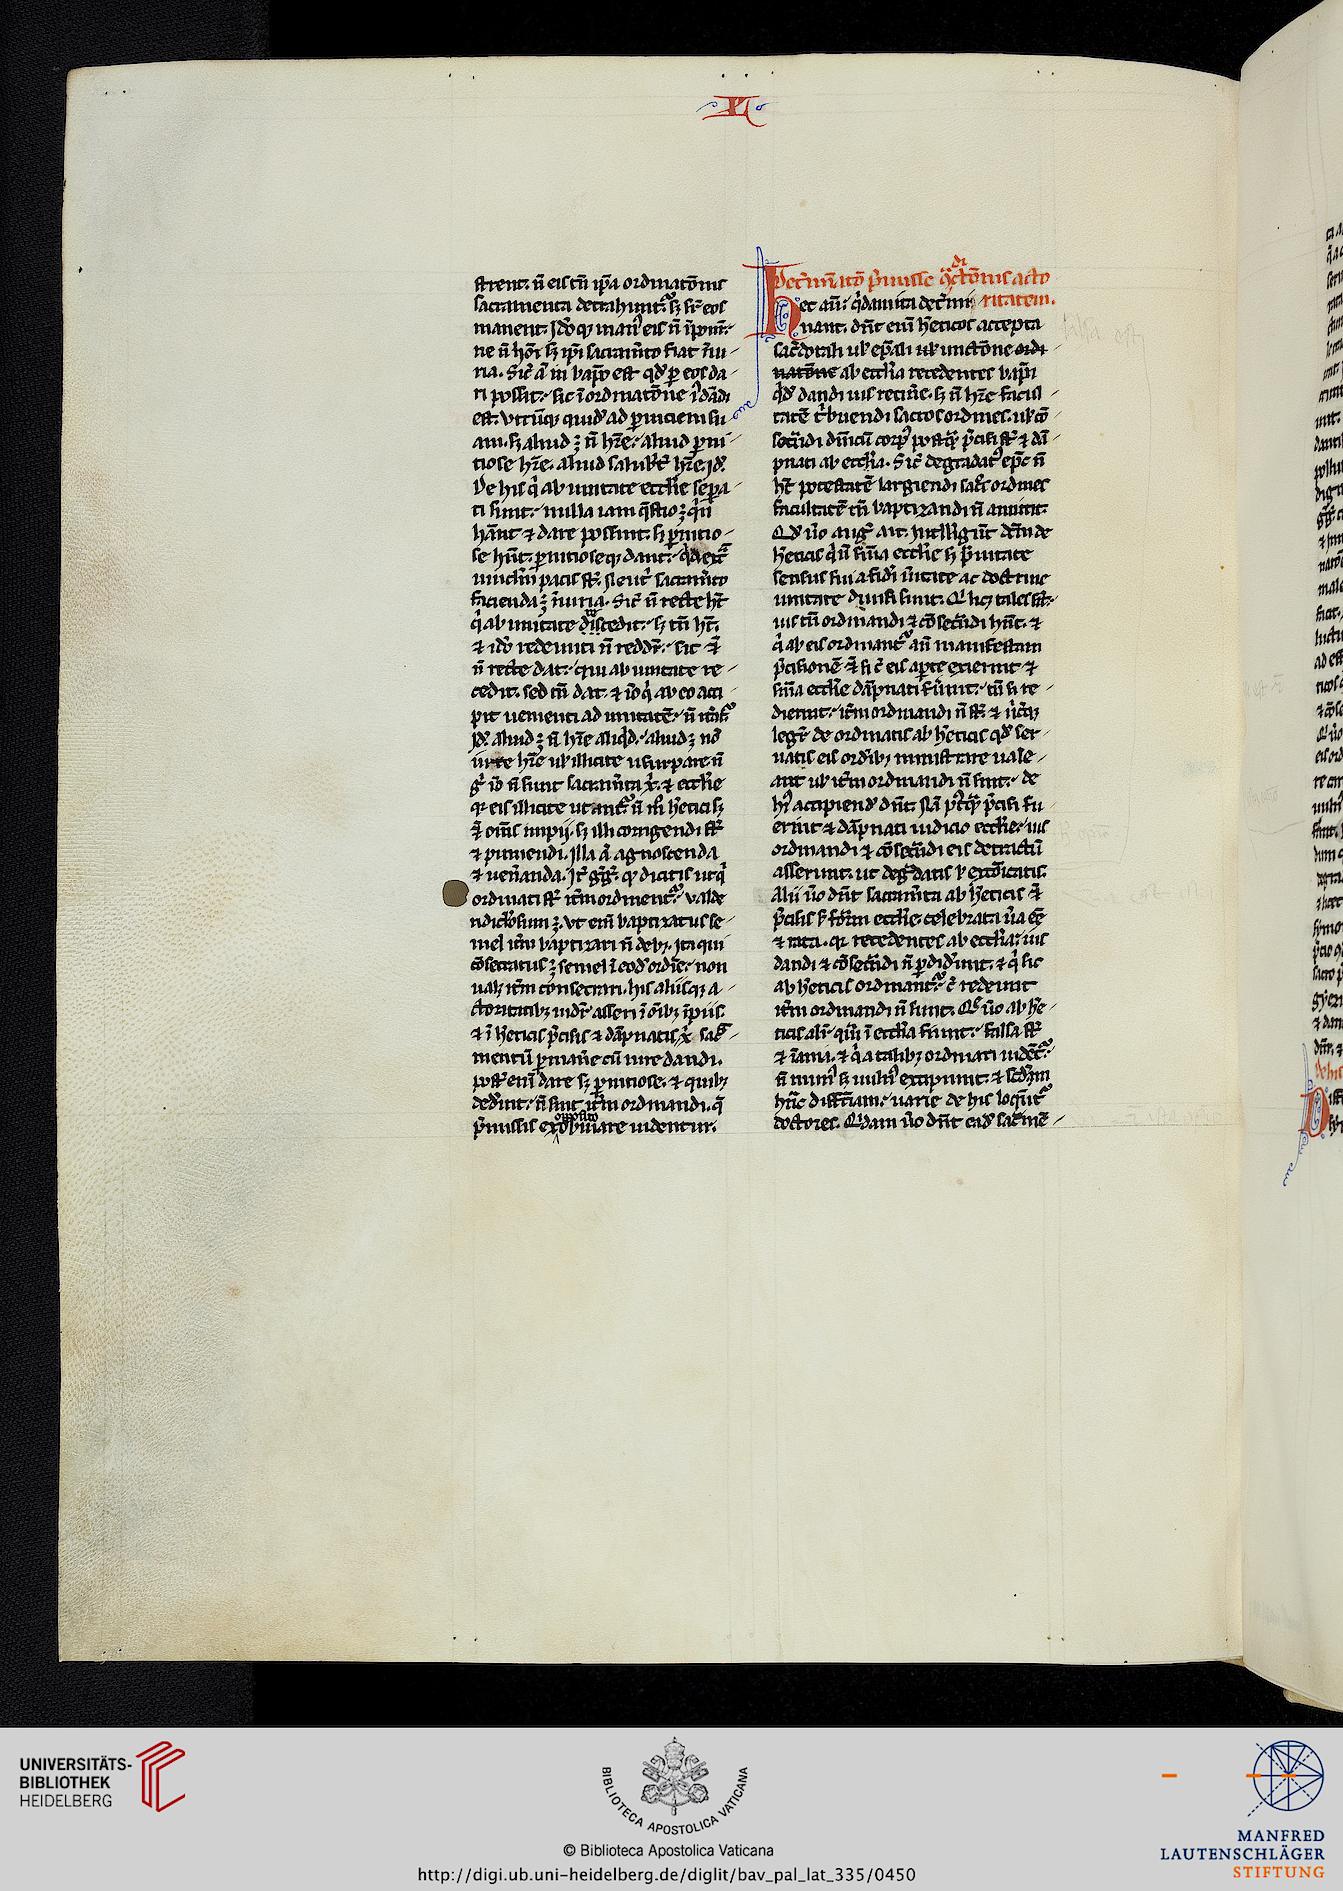 L
strent. n̄ eis tn̄ ip̄a ordinatōnis
sacramenta detrahunt᷑. sꝫ sr̄ eos
manent. Jdo qꝫ man᷑ eis n̄ īponit᷑.
ne n̄ hōi sꝫ ip̄i sacram̄to fiat iniu-
ria. Sic̄ .n. in bap̄o est qd̄ ꝑ eos da-
ri possit. sic ī ordinatōne ī dādi
est. vtrūqꝫ quid᷑ ad ꝑniciem su-
am. sꝫ aliud ꝫ n̄ hr̄e. aliud ꝑni-
tiose hr̄e. aliud salubr̄t hr̄e. Jd᷑.
De his q̄ ab unitate ecclīe sepa-
ti sunt. nulla iam q̄stio ꝫ qn̄
hānt ⁊ dare possunt. sꝫ ꝑnitio-
se hn̄t. ꝑnitioseqꝫ dant. q̄a extᵃ
uinclm̄ pacis st̄. Neut᷑ sacram̄to
facienda ꝫ iniuria. Sic̄ n̄ recte ht̄
q̄ ab unitate discedit. sꝫ tn̄ ht̄.
⁊ ido redeunti n̄ reddr̄. sic ⁊
n̄ recte dat. qui ab unitate re-
cedit. sed tn̄ dat. ⁊ īo q̄ ab eo acci-
pit uenienti ad unitatē. n̄ iter᷑
Jd᷑. aliud ꝫ n̄ hr̄e aliqd̄. aliud ꝫ nō
iure hr̄e ul᷑ illicite usurpare. n̄
gͦ īo n̄ sunt sacram̄ta x̄. ⁊ ecclīe
qr eis illicite utant᷑. n̄ m̄ h̄etici sꝫ
⁊ om̄s impij. sꝫ illi corrigendi st̄
⁊ puniendi. Jlla .n. agnoscenda
⁊ ueneranda. Jt᷑ gg̅. qꝫ dicitis ut q̄
ordinati st̄ itm̄ ordinent᷑. valde
ridiclosum ꝫ. Vt em̄ baptizatus se-
mel itm̄ baptizari n̄ debꝫ. Jta qui
cōsecratus ꝫ semel ī eod᷑ ordīe. non
ualꝫ itm̄ consecrari. his aliisqꝫ a-
ctoritatibꝫ uidr̄ asseri ī oībꝫ īpiis.
⁊ ī h̄eticis p̄cisis ⁊ dāpnatis x̄ saᵃ-
mentū ꝑman̄e cū iure dandi.
post̄ eni dare sꝫ ꝑnitiose. ⁊ quibꝫ
dederint. n̄ sunt itm̄ ordinandi. q̄
p̄missis ex opposito obuiare uidentur.
Dec̄minatō p̄misse ꝗ᷑tdictōnis acto
ritatem.
Hec au᷑. q̄dam ita dec̄mi-
nant. dn̄t eni h̄eticos accepta
sac̄dotali ul᷑ ep̄ali ul᷑ unctōne ordi
natōne ab ecclīa recedentes bapt̄i
qd̄ dandi ius retīe. sꝫ n̄ hr̄e facul-
tatē tibuendi sacros ordines. ul᷑ cō-
secr̄di dn̄icū corp᷑ postq̄ p̄cisi st̄ ⁊ dā-
pnati ab ecclīa. Sic̄ degradat᷑ ep̄c n̄
ht̄ potestatē largiendi sac̄os ordines
facultatē tn̄ baptizandi n̄ amittit.
Qd̄ u᷑o aug᷑ ait. Jntelligūt dc̄m de
h̄eticis q̄ n̄ fīa ecclīe sꝫ p̄uitate
sensus sui a fid᷑i ūitate ac doctrine
unitate diuisi sunt. Qi hꝫ tales st̄.
ius tn̄ ordinandi ⁊ cōsecr̄di hn̄t. ⁊
q̄ ab eis ordinant᷑ an̄ manifestam
p̄cisionē ⁊ si c̄ eis apte exierint ⁊
sn̄ia ecclīe dāpnati fuīnt. tn̄ si re-
dierint. itm̄ ordinandi n̄ st̄. ⁊ ūcq̄ꝫ
legr̄ de ordinatis ab h̄eticis qd̄ ser-
uatis eis ordībꝫ ministrare uale-
ant ul᷑ itm̄ ordinandi n̄ sint. de
hī accipiend᷑ dn̄t. Nā pꝰtq̄ p̄cisi fu-
erint ⁊ dāpnati iudicio ecclīe. ius
ordinandi ⁊ cōsecr̄di eis detractū
asserunt. ut degᵃdatis ul᷑ excōicatis.
Alii u᷑o dn̄t sacram̄ta ab h̄eticis ⁊
p̄cisis s̄ form̄ ecclīe celebrata ūa cē
⁊ rata. qr recedentes ab ecclīa. ius
dandi ⁊ cōsecr̄di n̄ ꝑdid᷑unt. ⁊ q̄ sic
ab h̄eticis ordinant᷑. c̄ redeunt
itm̄ ordinandi n̄ sunt. Qᷓ u᷑o ab h̄e-
ticis alr̄. qᵃm ī ecclīa fiunt. falsa st̄
⁊ īania. ⁊ q̄ a talibꝫ ordinati uidēt᷑.
n̄ mun᷑ sꝫ uuln᷑ excipiunt. ⁊ scd̄m
hn̄c distc̄am. uarie de his loq̄unt᷑
doctores. Qidam u᷑o dn̄t ead᷑ sac̄mē-
UNIVERSITÄTS-
BIBLIOTHEK
HEIDELBERG
BIBLIOTECA APOSTOLICA VATICANA
© Biblioteca Apostolica Vaticana
http://digi.ub.uni-heidelberg.de/diglit/bav_pal_lat_335/0450
MANFRED
LAUTENSCHLÄGER
STIFTUNG